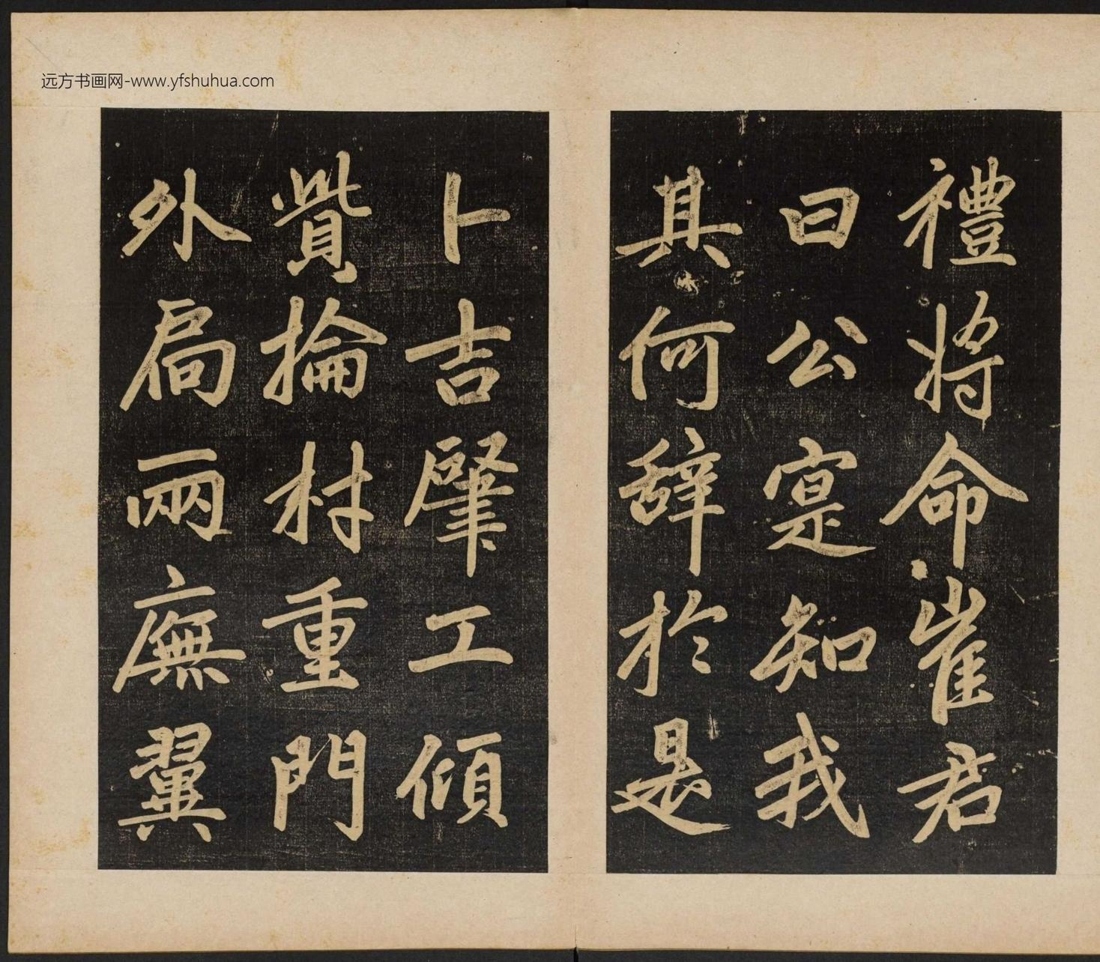 远方书画网-www.yfshuhua.com
禮將命崔君
曰公寔知我
其何辭於是
卜吉肇工傾
貲掄材重門
外扃兩廡翼